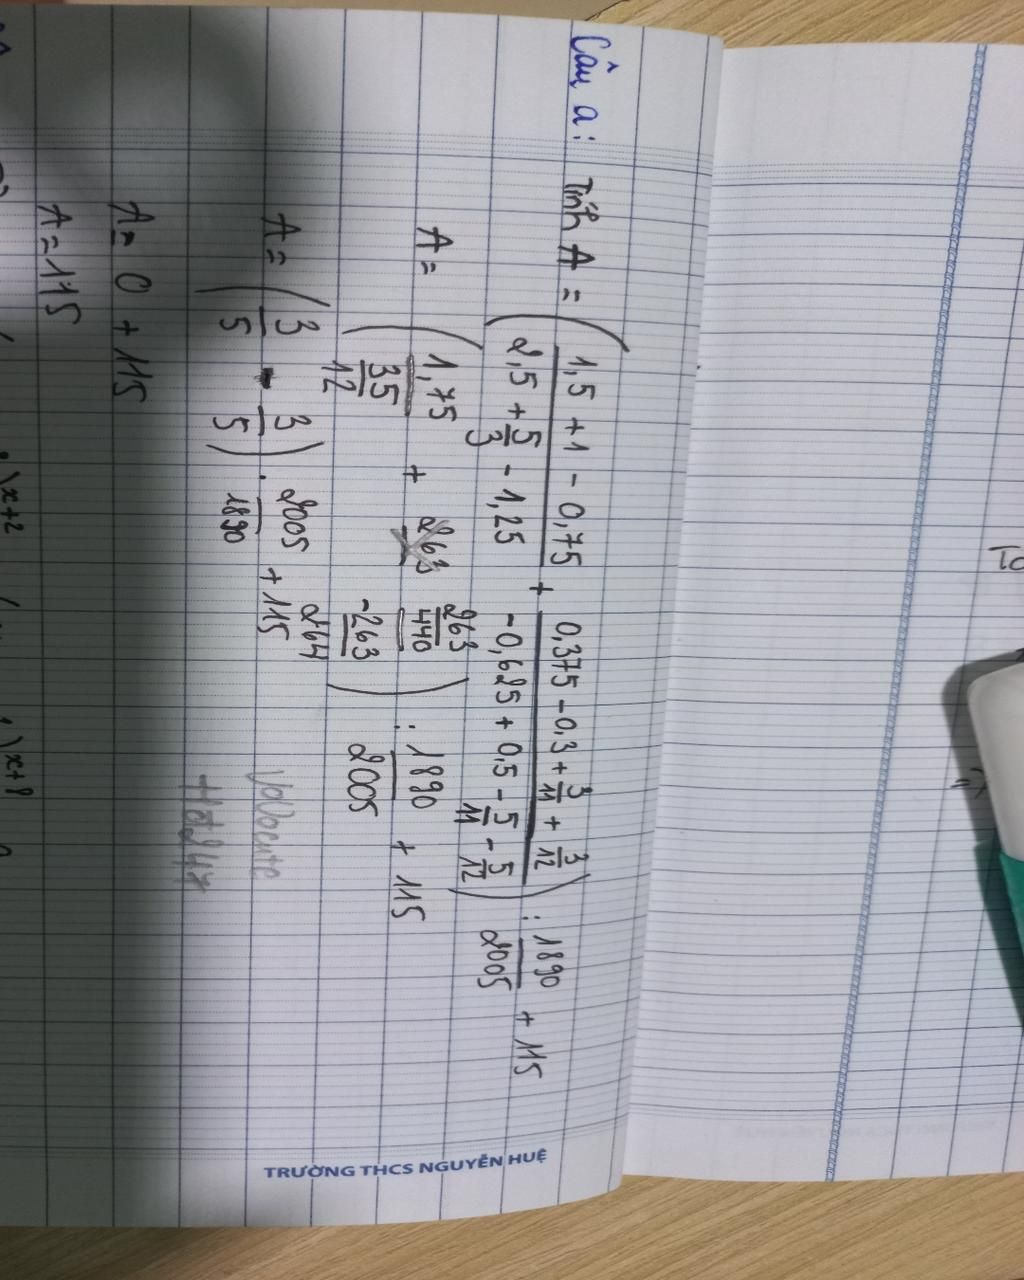 Câu a: Tính A = ( (1,5 + 1 - 0,75)/(2,5 + 5/3 - 1,25) + (0,375 - 0,3 + 3/11 + 3/12)/(-0,625 + 0,5 - 5/11 - 5/12) ) : 1890/2005 + 115
A = ( 1,75/(35/12) + (263/440)/(-263/264) ) : 1890/2005 + 115
A = ( 3/5 - 3/5 ) . 2005/1890 + 115
A = 0 + 115
A = 115
TRƯỜNG THCS NGUYỄN HUỆ